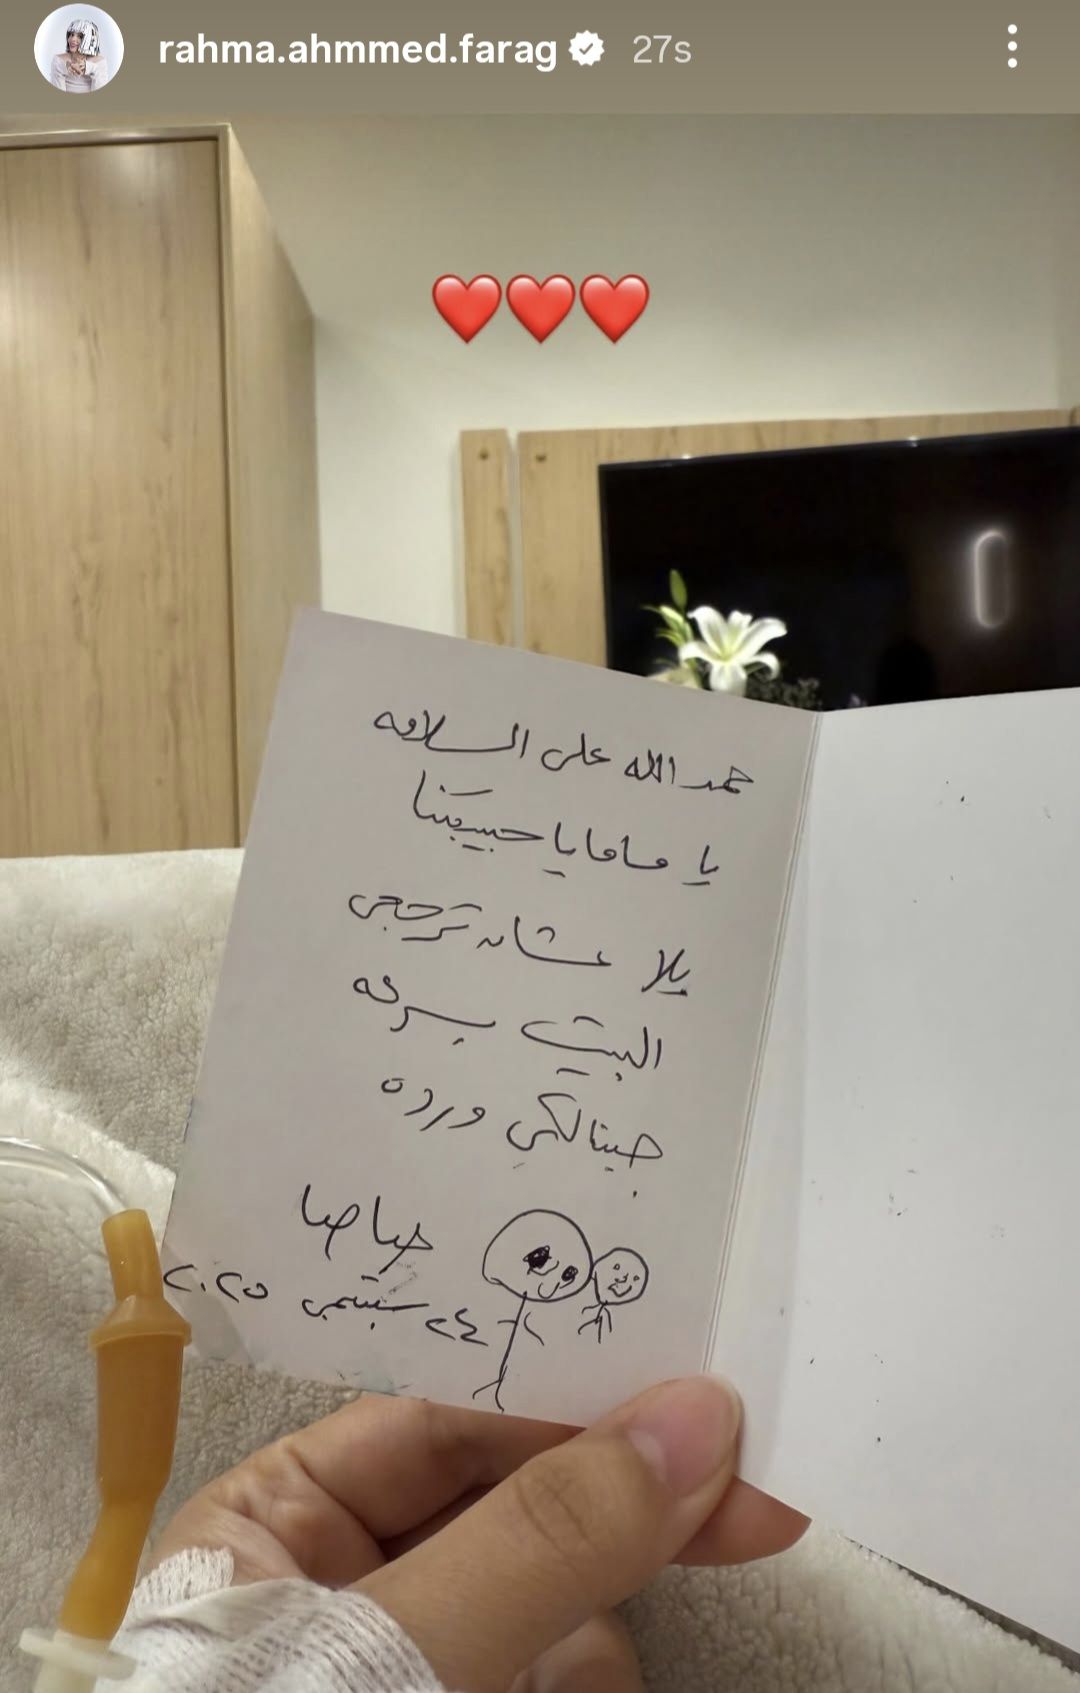 rahma.ahmmed.farag 27s
حمد الله على السلامه
يا ماما يا حبيبتنا
يلا عشان ترجعى
البيت بسرعه
جبنالكي ورده
٢٤ سبتمبر ٢٠٢٥